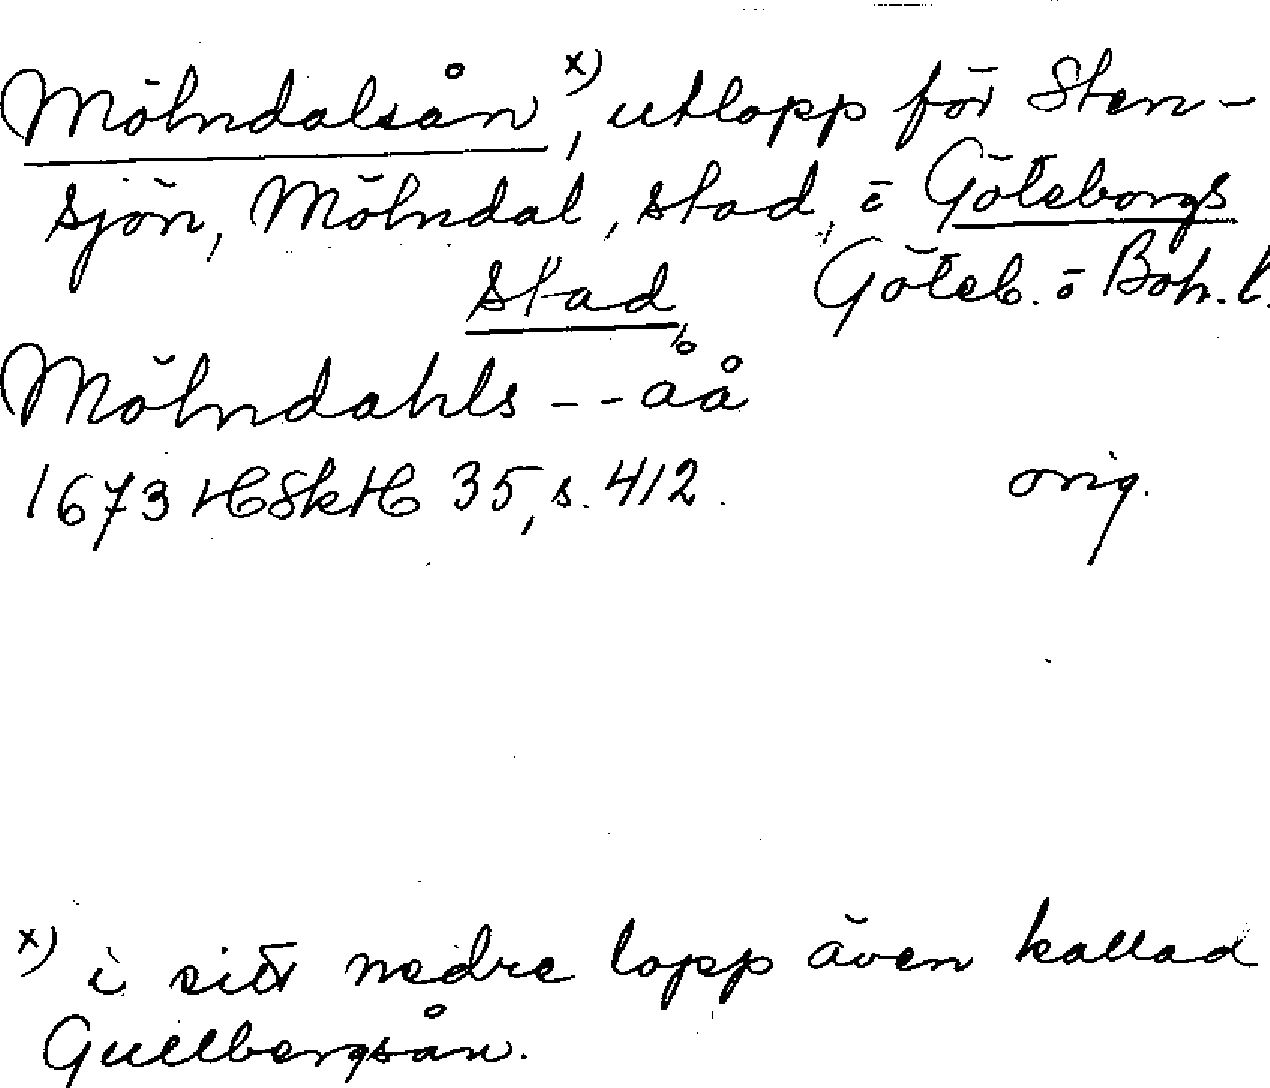 Mölndalsån x), utlopp för Sten-
sjön, Mölndal, stad, ö Göteborgs
stad, Göteb. o Boh. l.
Mölndahls -- åå
1673 HSkH 35, s. 412. orig.
x) i sitt nedre lopp även kallad
Gullbergsån.